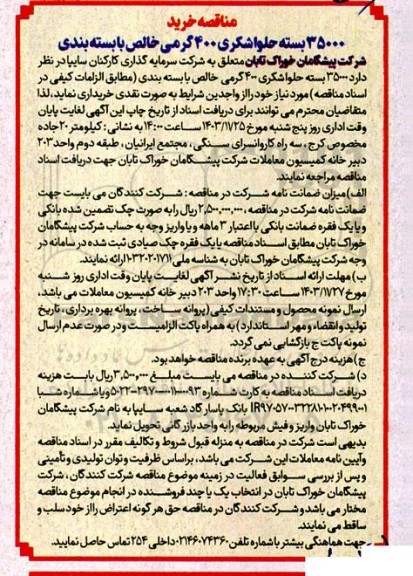 مناقصه خرید
۳۵۰۰۰ بسته حلوا شکری ۴۰۰ گرمی خالص با بسته بندی
شرکت پیشگامان خوراک تابان متعلق به شرکت سرمایه گذاری کارکنان سایپا در نظر
دارد ۳۵۰۰۰ بسته حلوا شکری ۴۰۰ گرمی خالص با بسته بندی (مطابق الزامات کیفی در
اسناد مناقصه) مورد نیاز خود را از واجدین شرایط به صورت نقدی خریداری نماید، لذا
متقاضیان محترم می توانند برای دریافت اسناد از تاریخ چاپ این آگهی لغایت پایان
وقت اداری روز پنج شنبه مورخ ۱۴۰۳/۱/۲۵ ساعت ۱۴:۰۰ به نشانی: کیلومتر ۲۰ جاده
مخصوص کرج، سه راه کاروانسرای سنگی، مجتمع ایرانیان، طبقه دوم واحد ۲۰۳
دبیر خانه کمیسیون معاملات شرکت پیشگامان خوراک تابان جهت دریافت اسناد
مناقصه مراجعه نمایند.
الف) میزان ضمانت نامه شرکت در مناقصه: شرکت کنندگان می بایست جهت
ضمانت نامه شرکت در مناقصه، ۲,۵۰۰,۰۰۰,۰۰۰ ریال را به صورت چک تضمین شده بانکی
و یا یک فقره ضمانت بانکی با اعتبار ۳ ماهه و یا واریز وجه به حساب شرکت پیشگامان
خوراک تابان مطابق اسناد مناقصه یا یک فقره چک صیادی ثبت شده در سامانه در
وجه شرکت پیشگامان خوراک تابان به شناسه ملی ۱۰۳۲۰۲۰۱۷۱۱ ارائه نمایند.
ب) مهلت ارائه اسناد از تاریخ نشر آگهی لغایت پایان وقت اداری روز شنبه
مورخ ۱۴۰۳/۱/۲۷ ساعت ۱۷:۳۰ واحد ۲۰۳ دبیر خانه کمیسیون معاملات می باشد،
ارسال نمونه محصول و مستندات کیفی (پروانه ساخت، پروانه بهره برداری، تاریخ
تولید و انقضاء و مهر استاندارد) به همراه پاکت الزامیست و در صورت عدم ارسال
نمونه پاکت ج بازگشایی نمی گردد.
ج) هزینه درج آگهی به عهده برنده مناقصه خواهد بود.
د) شرکت کننده در مناقصه می بایست مبلغ ۳,۵۰۰,۰۰۰ ریال بابت هزینه
دریافت اسناد مناقصه به کارت شماره و یا شماره شبا
بانک پاسارگاد شعبه سایپا به نام شرکت پیشگامان
خوراک تابان واریز و فیش مربوطه را به واحد بازرگانی تحویل نماید.
بدیهی است شرکت در مناقصه به منزله قبول شروط و تکالیف مقرر در اسناد مناقصه
و آیین نامه معاملات این شرکت می باشد، براساس ظرفیت و توان تولیدی و تأمینی
و پس از بررسی سوابق فعالیت در زمینه موضوع مناقصه شرکت کنندگان، شرکت
پیشگامان خوراک تابان در انتخاب یک یا چند فروشنده در انجام موضوع مناقصه
مختار می باشد و شرکت کنندگان در مناقصه حق هر گونه اعتراض را از خود سلب و
ساقط می نمایند.
جهت هماهنگی بیشتر با شماره تلفن ۰۲۱۴۶۰۷۴۳۶۰ داخلی ۲۵۴ تماس حاصل نمایید.